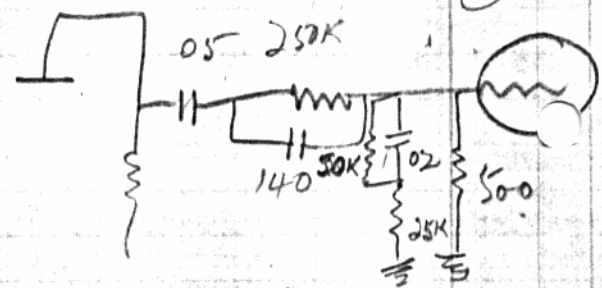 05 250K
140 50K 02 500
25K